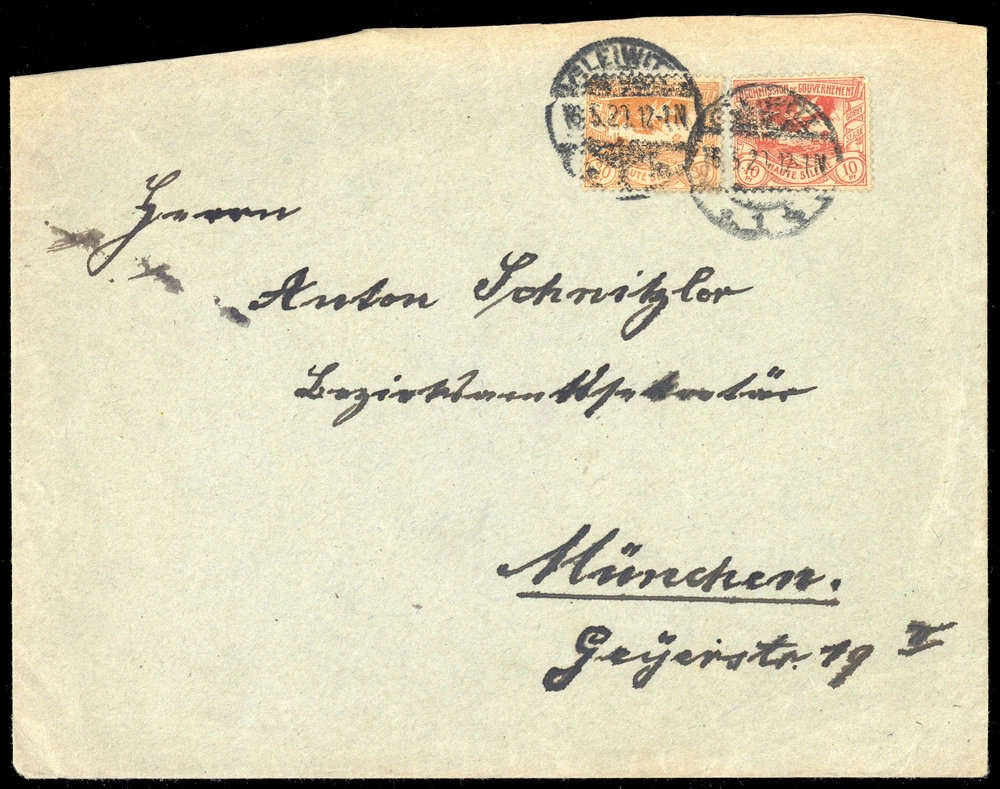 GLEIWITZ
16.5.20.12-1N
COMMISSION DE GOUVERNEMENT
HAUTE SILÉ
30
HAUTE SILÉ
10
10
16.5.20.12-1N
1
Herrn
Anton Schnitzler
Bezirksamtssekretär
München.
Geyerstr. 19 II